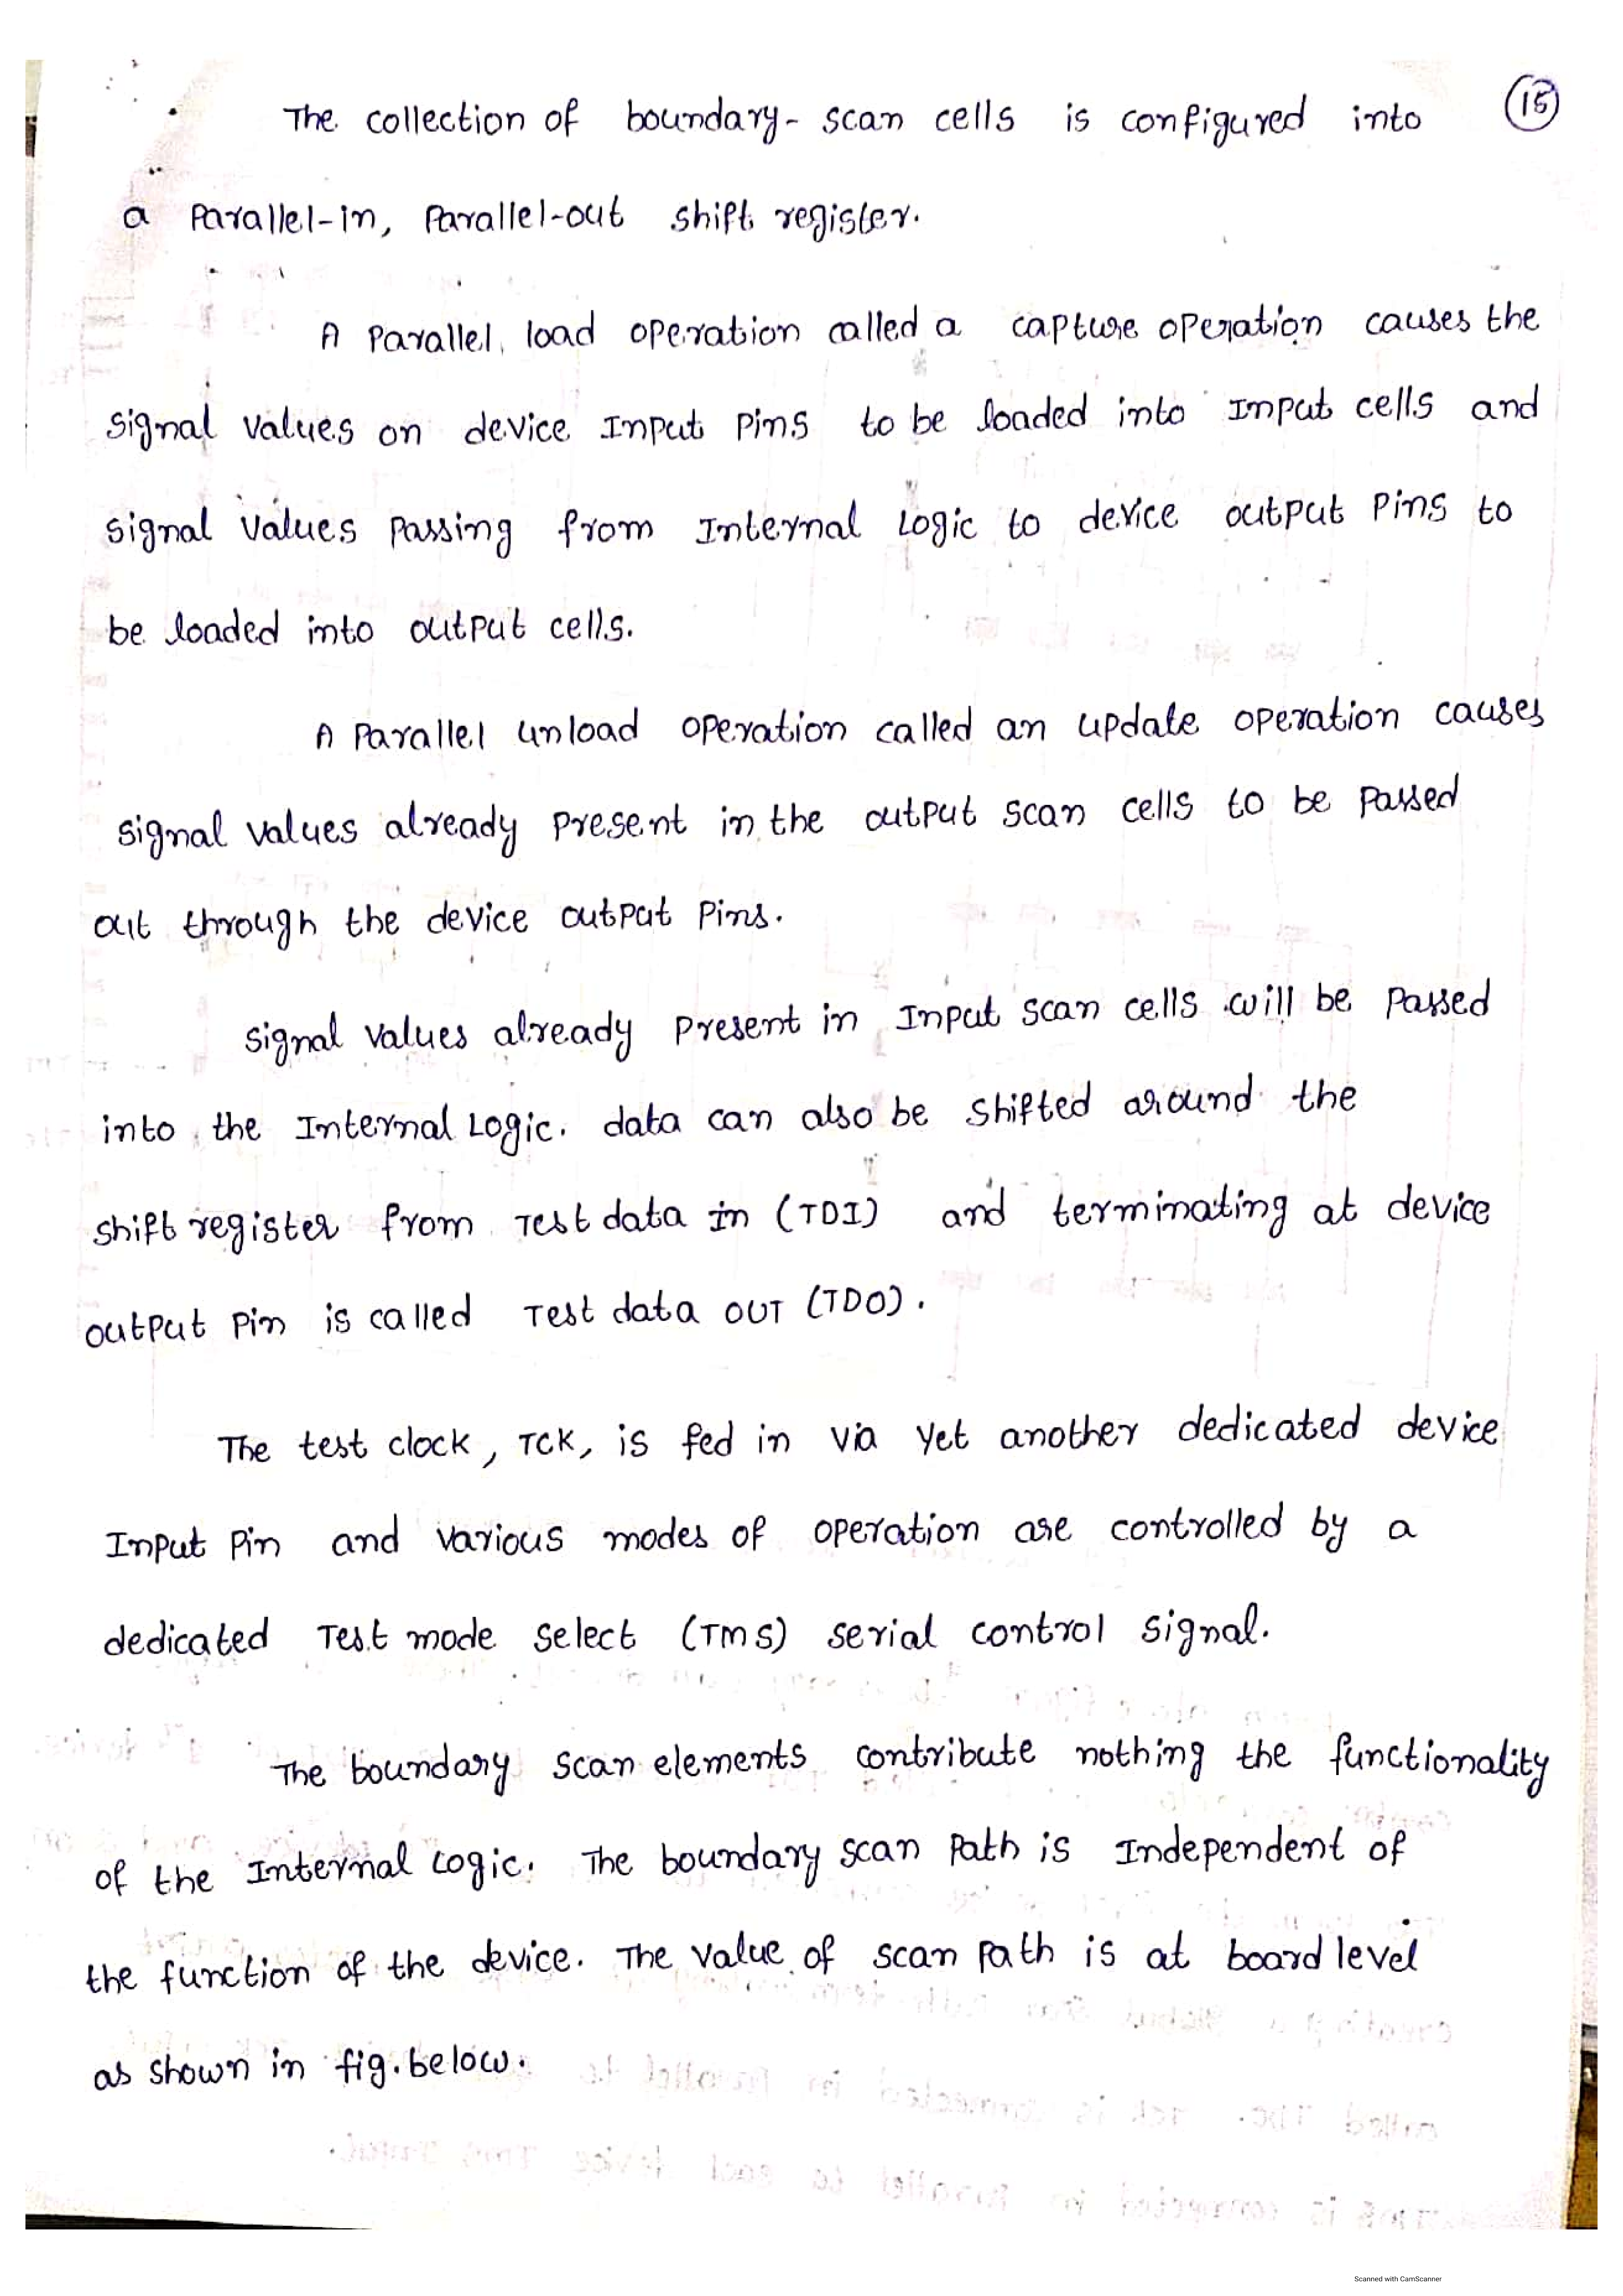 The collection of boundary-scan cells is configured into
15
a Parallel-in, Parallel-out shift register.
A Parallel load operation called a capture operation causes the
signal values on device Input Pins to be loaded into Input cells and
signal values passing from Internal Logic to device output Pins to
be loaded into output cells.
A Parallel unload operation called an update operation causes
signal values already present in the output scan cells to be passed
out through the device output Pins.
signal values already present in Input scan cells will be passed
into the Internal Logic. data can also be shifted around the
shift register from Test data in (TDI) and terminating at device
output Pin is called Test data OUT (TDO).
The test clock, TCK, is fed in via yet another dedicated device
Input Pin and various modes of operation are controlled by a
dedicated Test mode select (TMS) serial control signal.
The boundary scan elements contribute nothing the functionality
of the Internal Logic. The boundary scan Path is Independent of
the function of the device. The value of scan Path is at board level
as shown in fig. below.
Scanned with CamScanner